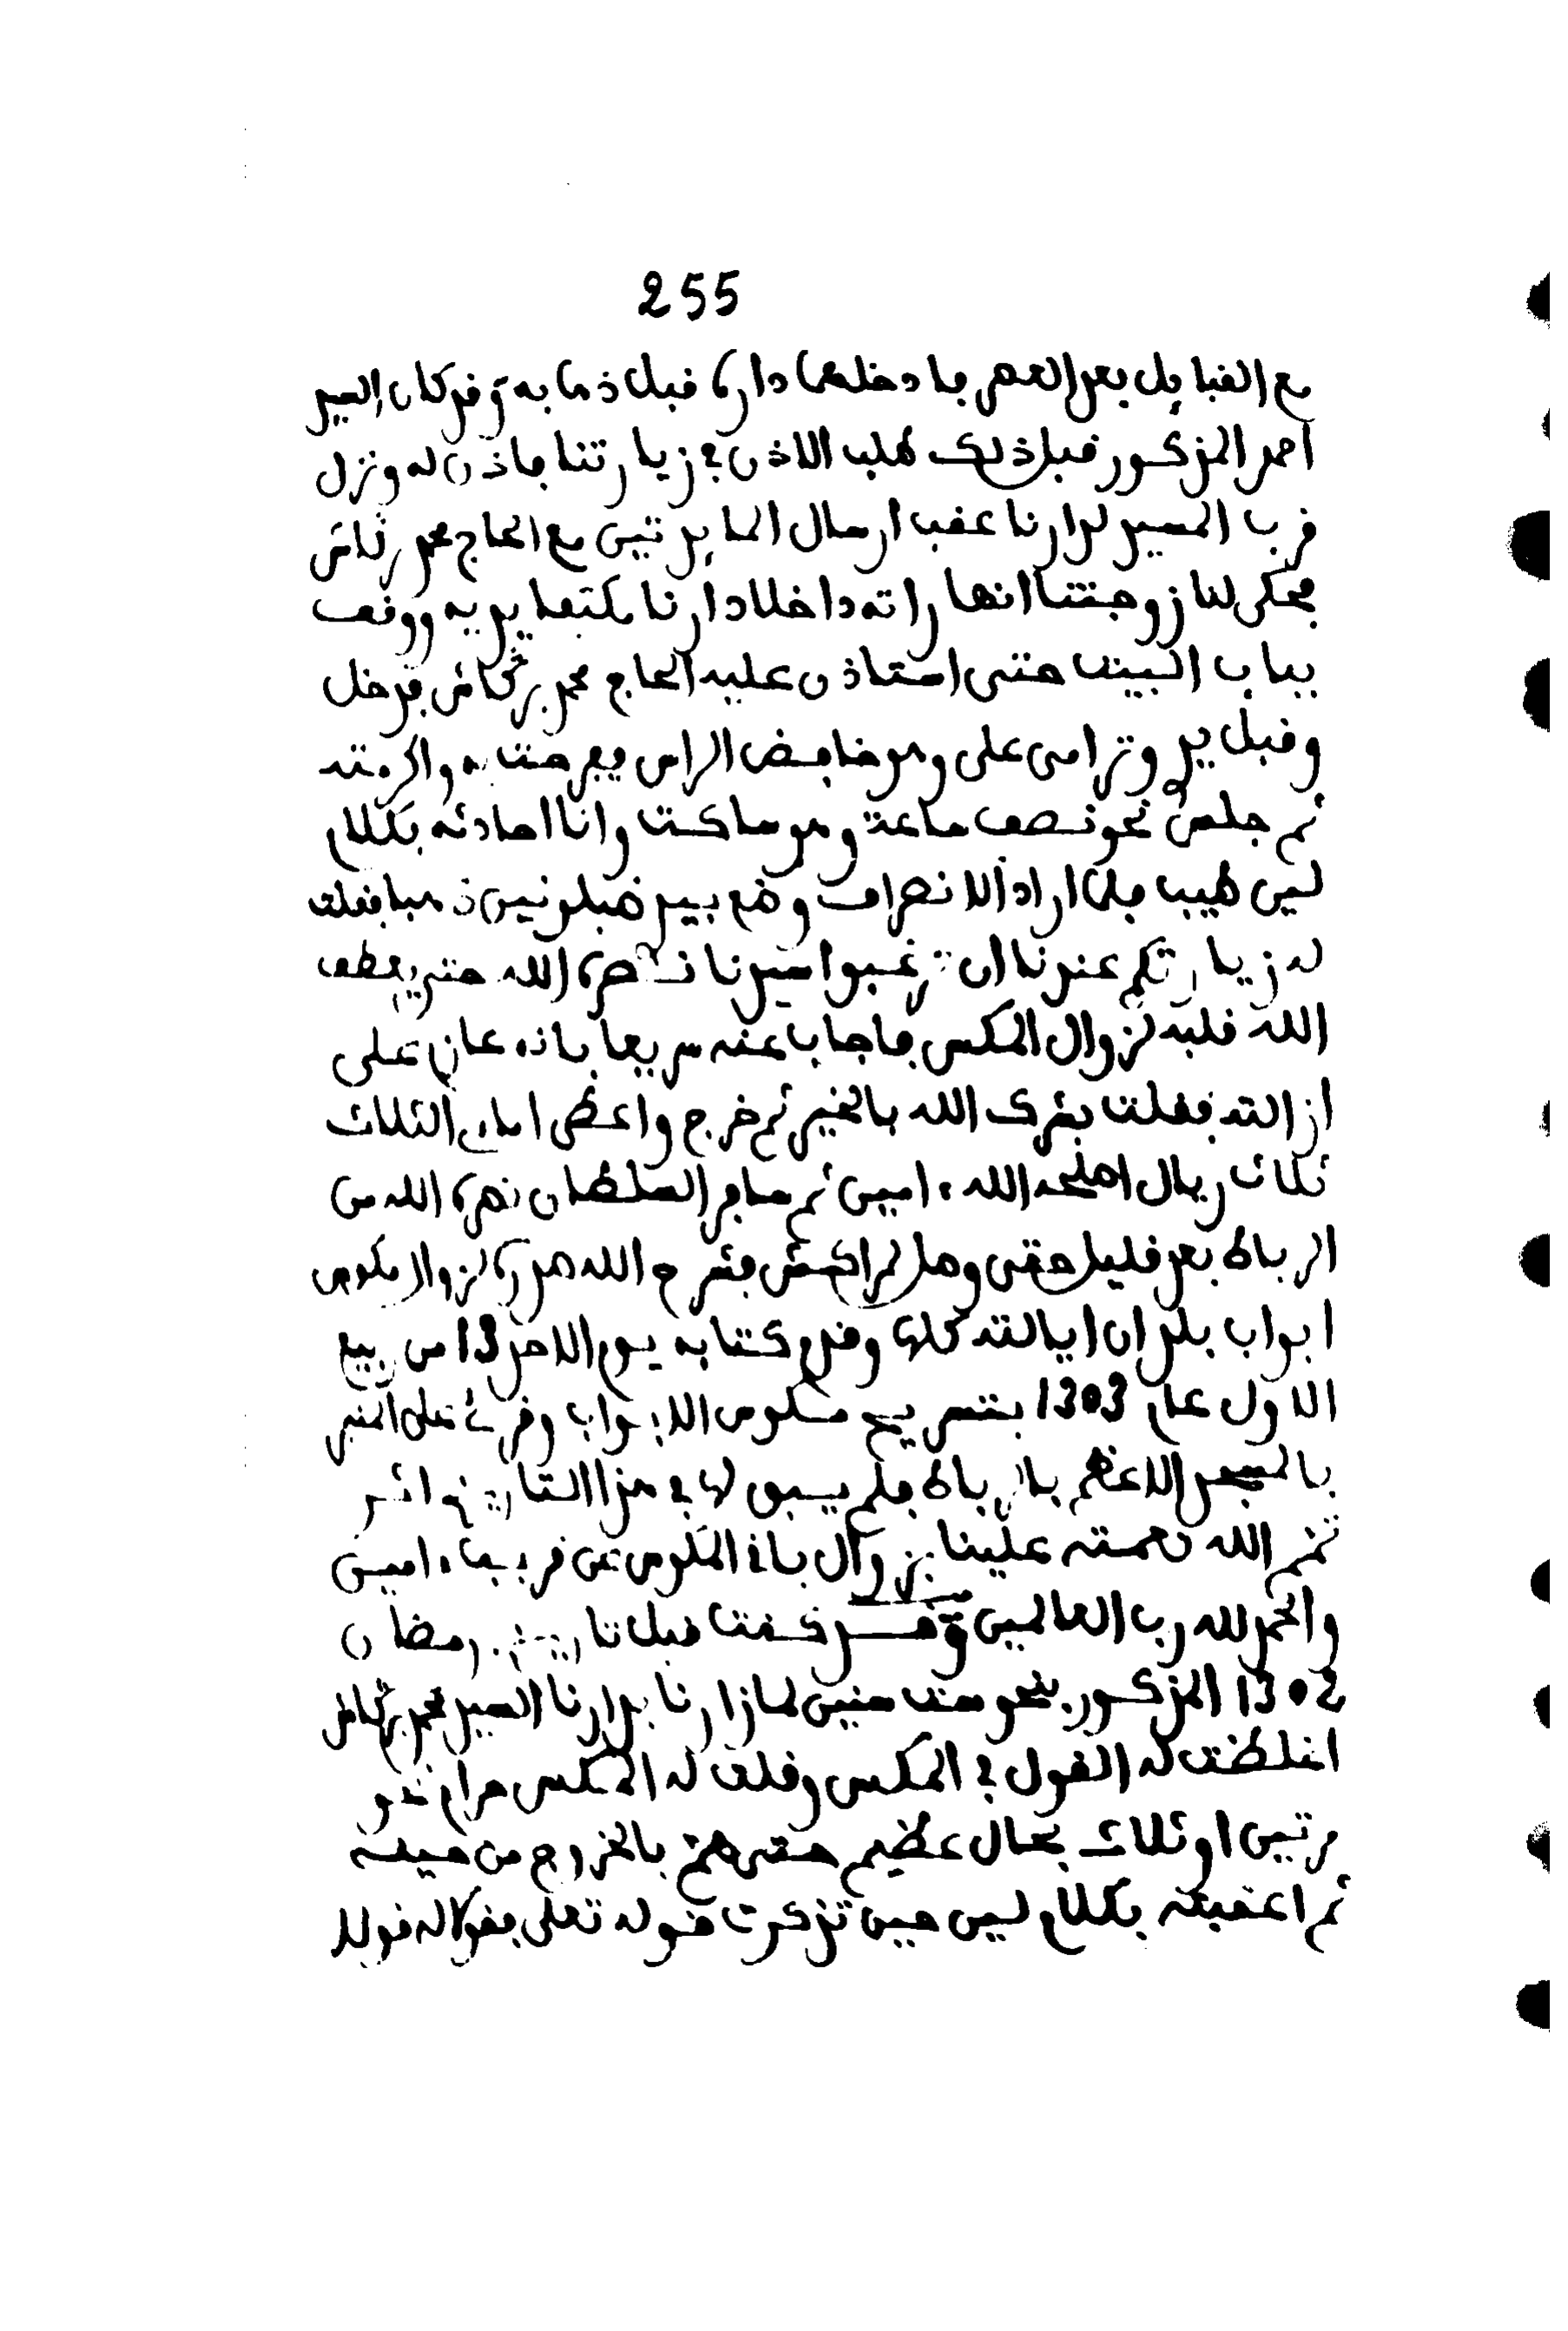 255
مع القبايل بعد العصر فادخلهما داره قبل ذهابه وقد كان السيد
احمد المذكور قبل ذلك طلب الاذن في زيارتنا فاذن له ونزل
قرب المسيد لدارنا عقب ارسال المايدتين مع الحاج محمد بركاش
فحكى لنا زوجتنا انها راته داخلا دارنا مكتفا يديه ووقف
بباب البيت حتى استاذن عليه الحاج محمد بركاش فدخل
وقبل يدي وترامى علي وهو خافض الراس ففرحت به واكرمته
ثم جلس نحو نصف ساعة وهو ساكت وانا احادثه بكلام
لين طيب فلما اراد الانصراف وضع بيدي ضبلونين ذهبا فقلت
له زيارتكم عندنا ان ترغبوا سيدنا نصره الله حتى يعطف
الله قلبه لزوال المكس فاجاب عنه سريعا بانه عازم على
ازالته فقلت بشرك الله بالخير ثم خرج واعطى اصحابي الثلاث
ثلاث ريال اصلحه الله ءامين ثم سافر السلطان نصره الله من
الرباط بعد قليل حتى وصل لمراكش فشرح الله صدره لزوال مكوس
ابواب بلدان ايالته كلها وقدم كتابه يوم الاحد 13 من ربيع
الاول عام 1303 بتسريح مكوس الابواب وقرئ على المنبر
بالمسجد الاعظم بالرباط فلم يبق لها في هذا التاريخ اثر
تمم الله نعمته علينا بزوال باقي المكوس عن قريب ءامين
والحمد لله رب العالمين وقد كنت قبل تاريخ رمضان
1302 المذكور بنحو ست سنين لما زارنا بدارنا السيد محمد بركاش
اغلظت له القول في المكس وقلت له المكس حرام نحو
مرتين او ثلاث بحال عظيم حتى هم بالخروج من حينه
ثم اعقبته بكلام لين حين تذكرت قوله تعلى فقولا له قولا